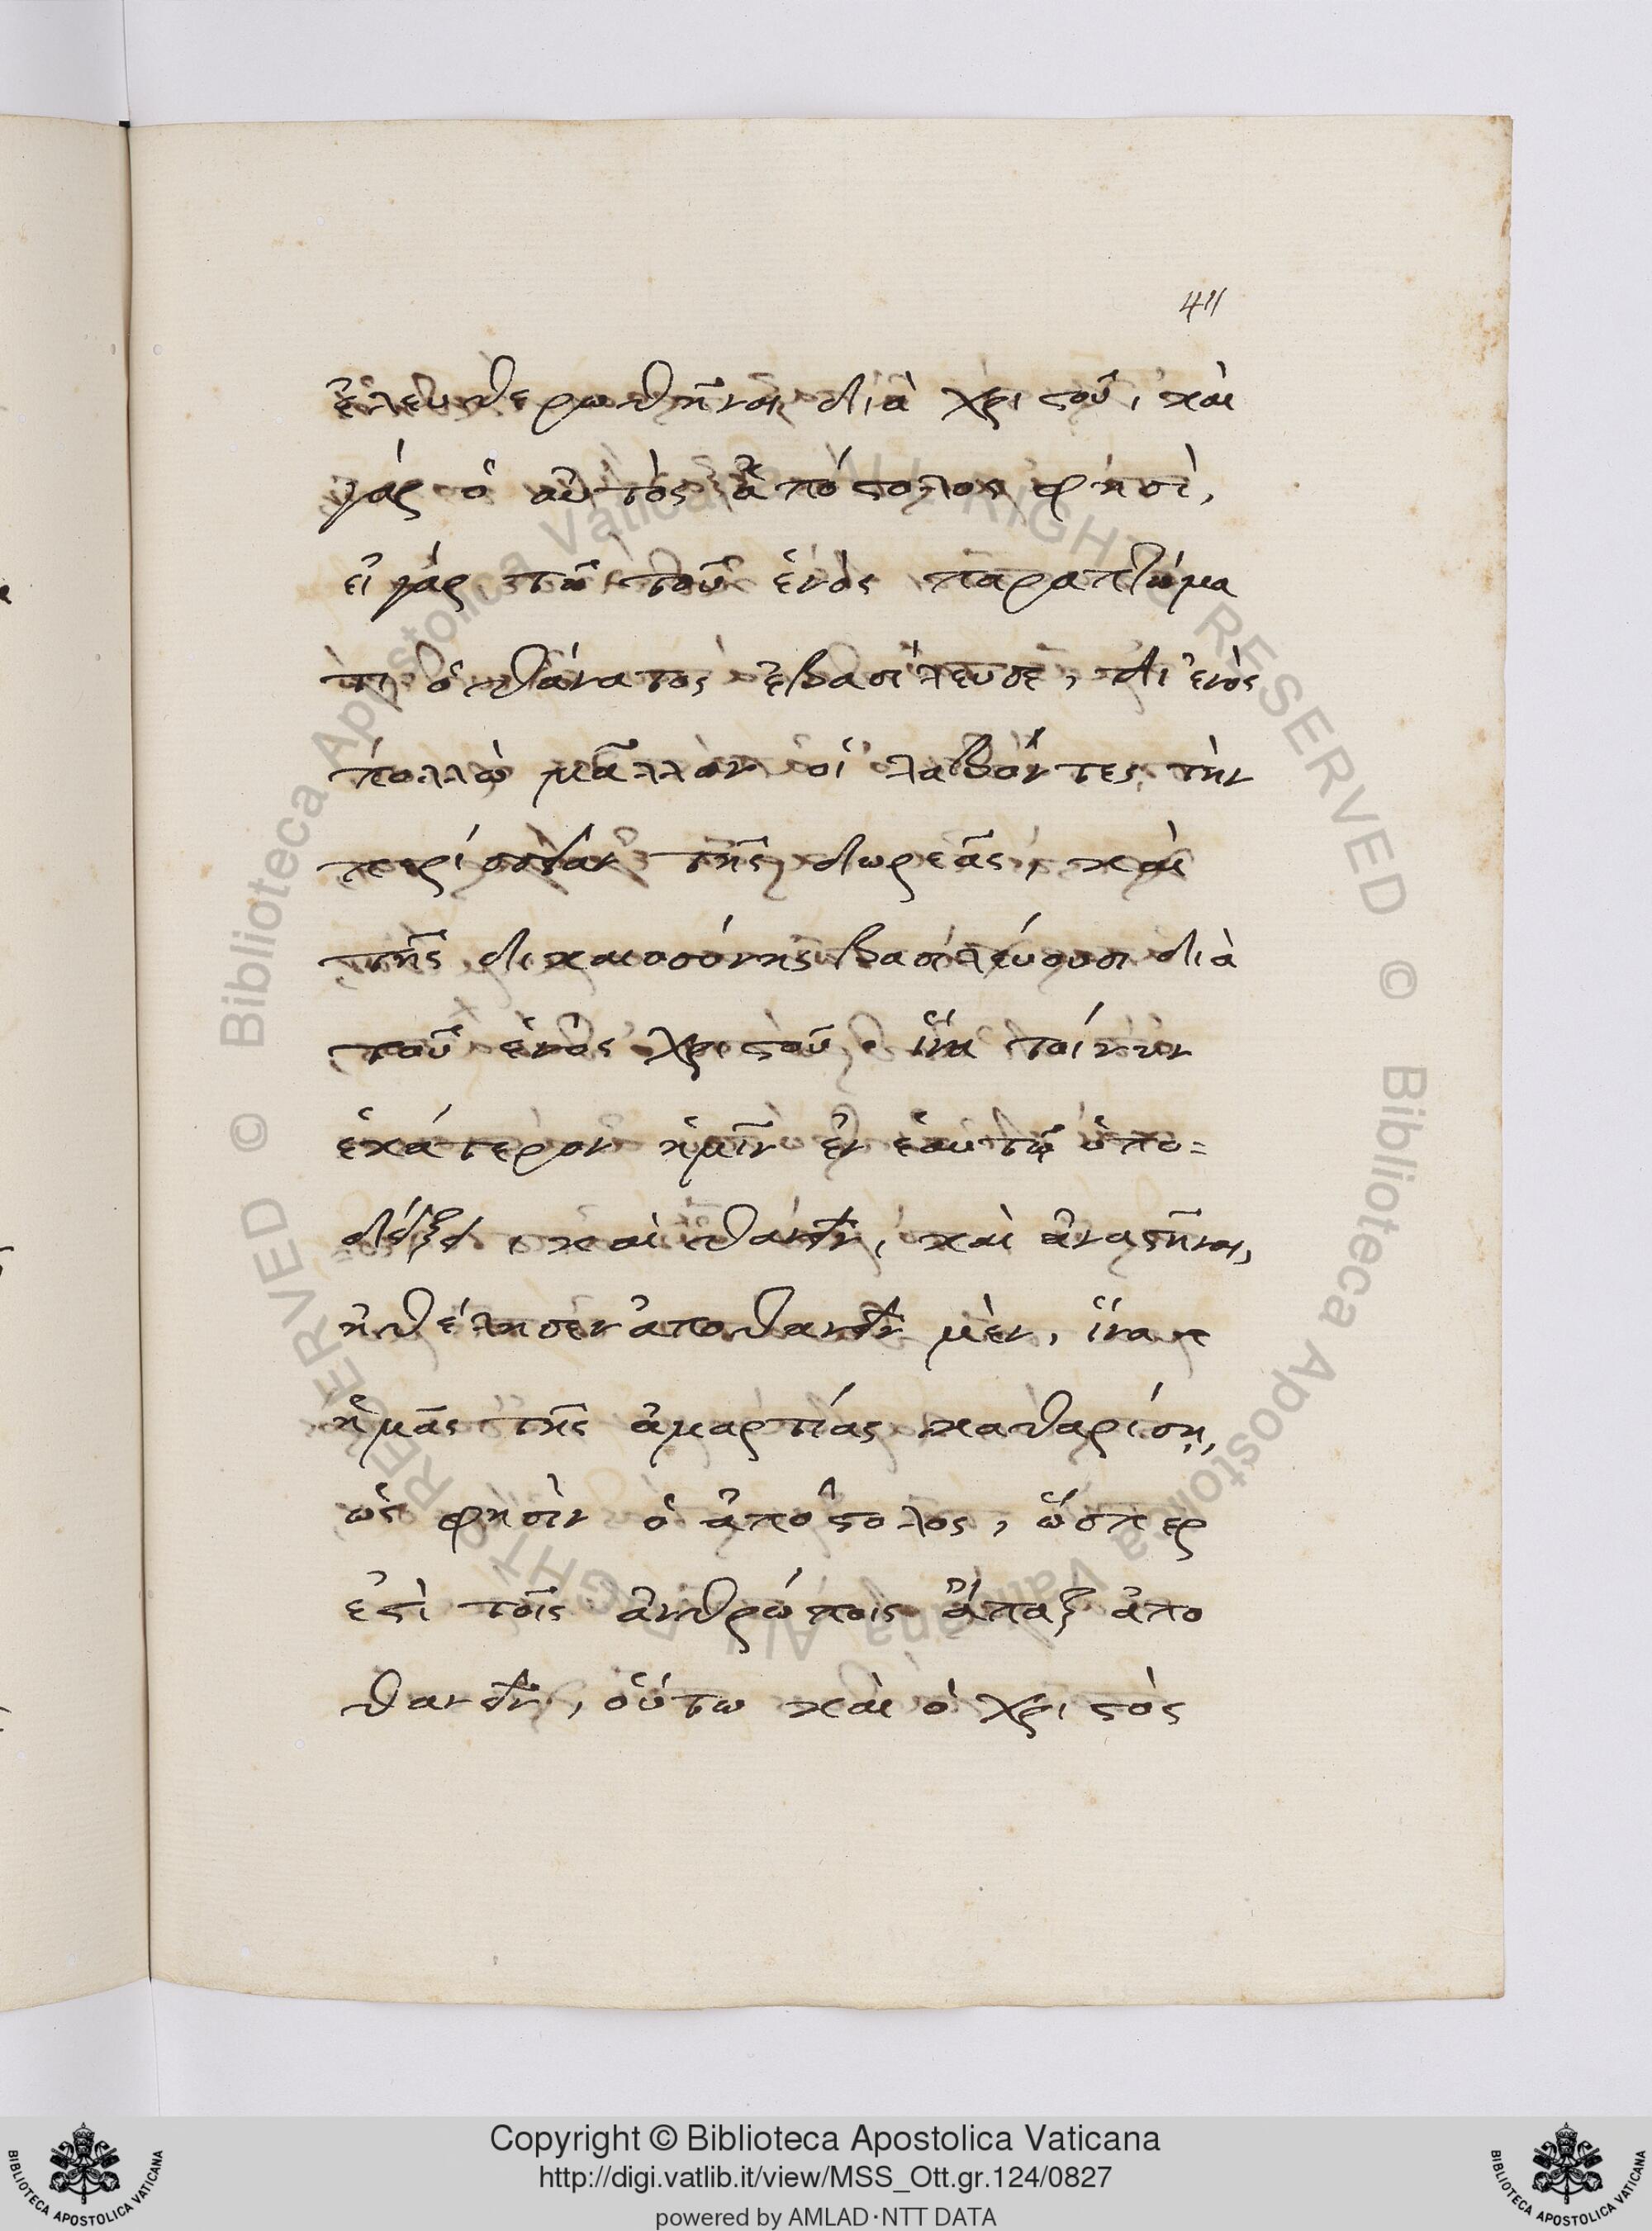 411
ἐλευθερωθῆναι διὰ χριστοῦ, καὶ
γάρ ὁ αὐτὸς ἀπόστολος φησὶ,
εἰ γάρ τῶ τοῦ ἑνὸς παραπτώμα
τι ὁ θάνατος ἐβασίλευσε, δι ἑνὸς
πολλῶ μᾶλλον οἱ λαβόντες τὴν
περίσσειαν τῆς δωρεᾶς, καὶ
τῆς δικαιοσύνης βασιλεύουσι διὰ
τοῦ ἑνὸς χριστοῦ. ἵνα τοίνυν
ἑκάτερον ἡμῖν ἐν ἑαυτῷ ὑπο=
δείξει, καὶ θανεῖν, καὶ ἀναστῆναι,
ἠθέλησεν ἀποθανεῖν μὲν, ἵνα
ἡμᾶς τῆς ἁμαρτίας καθαρίσῃ,
ὡς φησὶν ὁ ἀπόστολος, ὥσπερ
ἐστὶ τοῖς ἀνθρώποις ἅπαξ ἀπο
θανεῖν, οὕτω καὶ ὁ χριστὸς
Copyright © Biblioteca Apostolica Vaticana
http://digi.vatlib.it/view/MSS_Ott.gr.124/0827
powered by AMLAD·NTT DATA